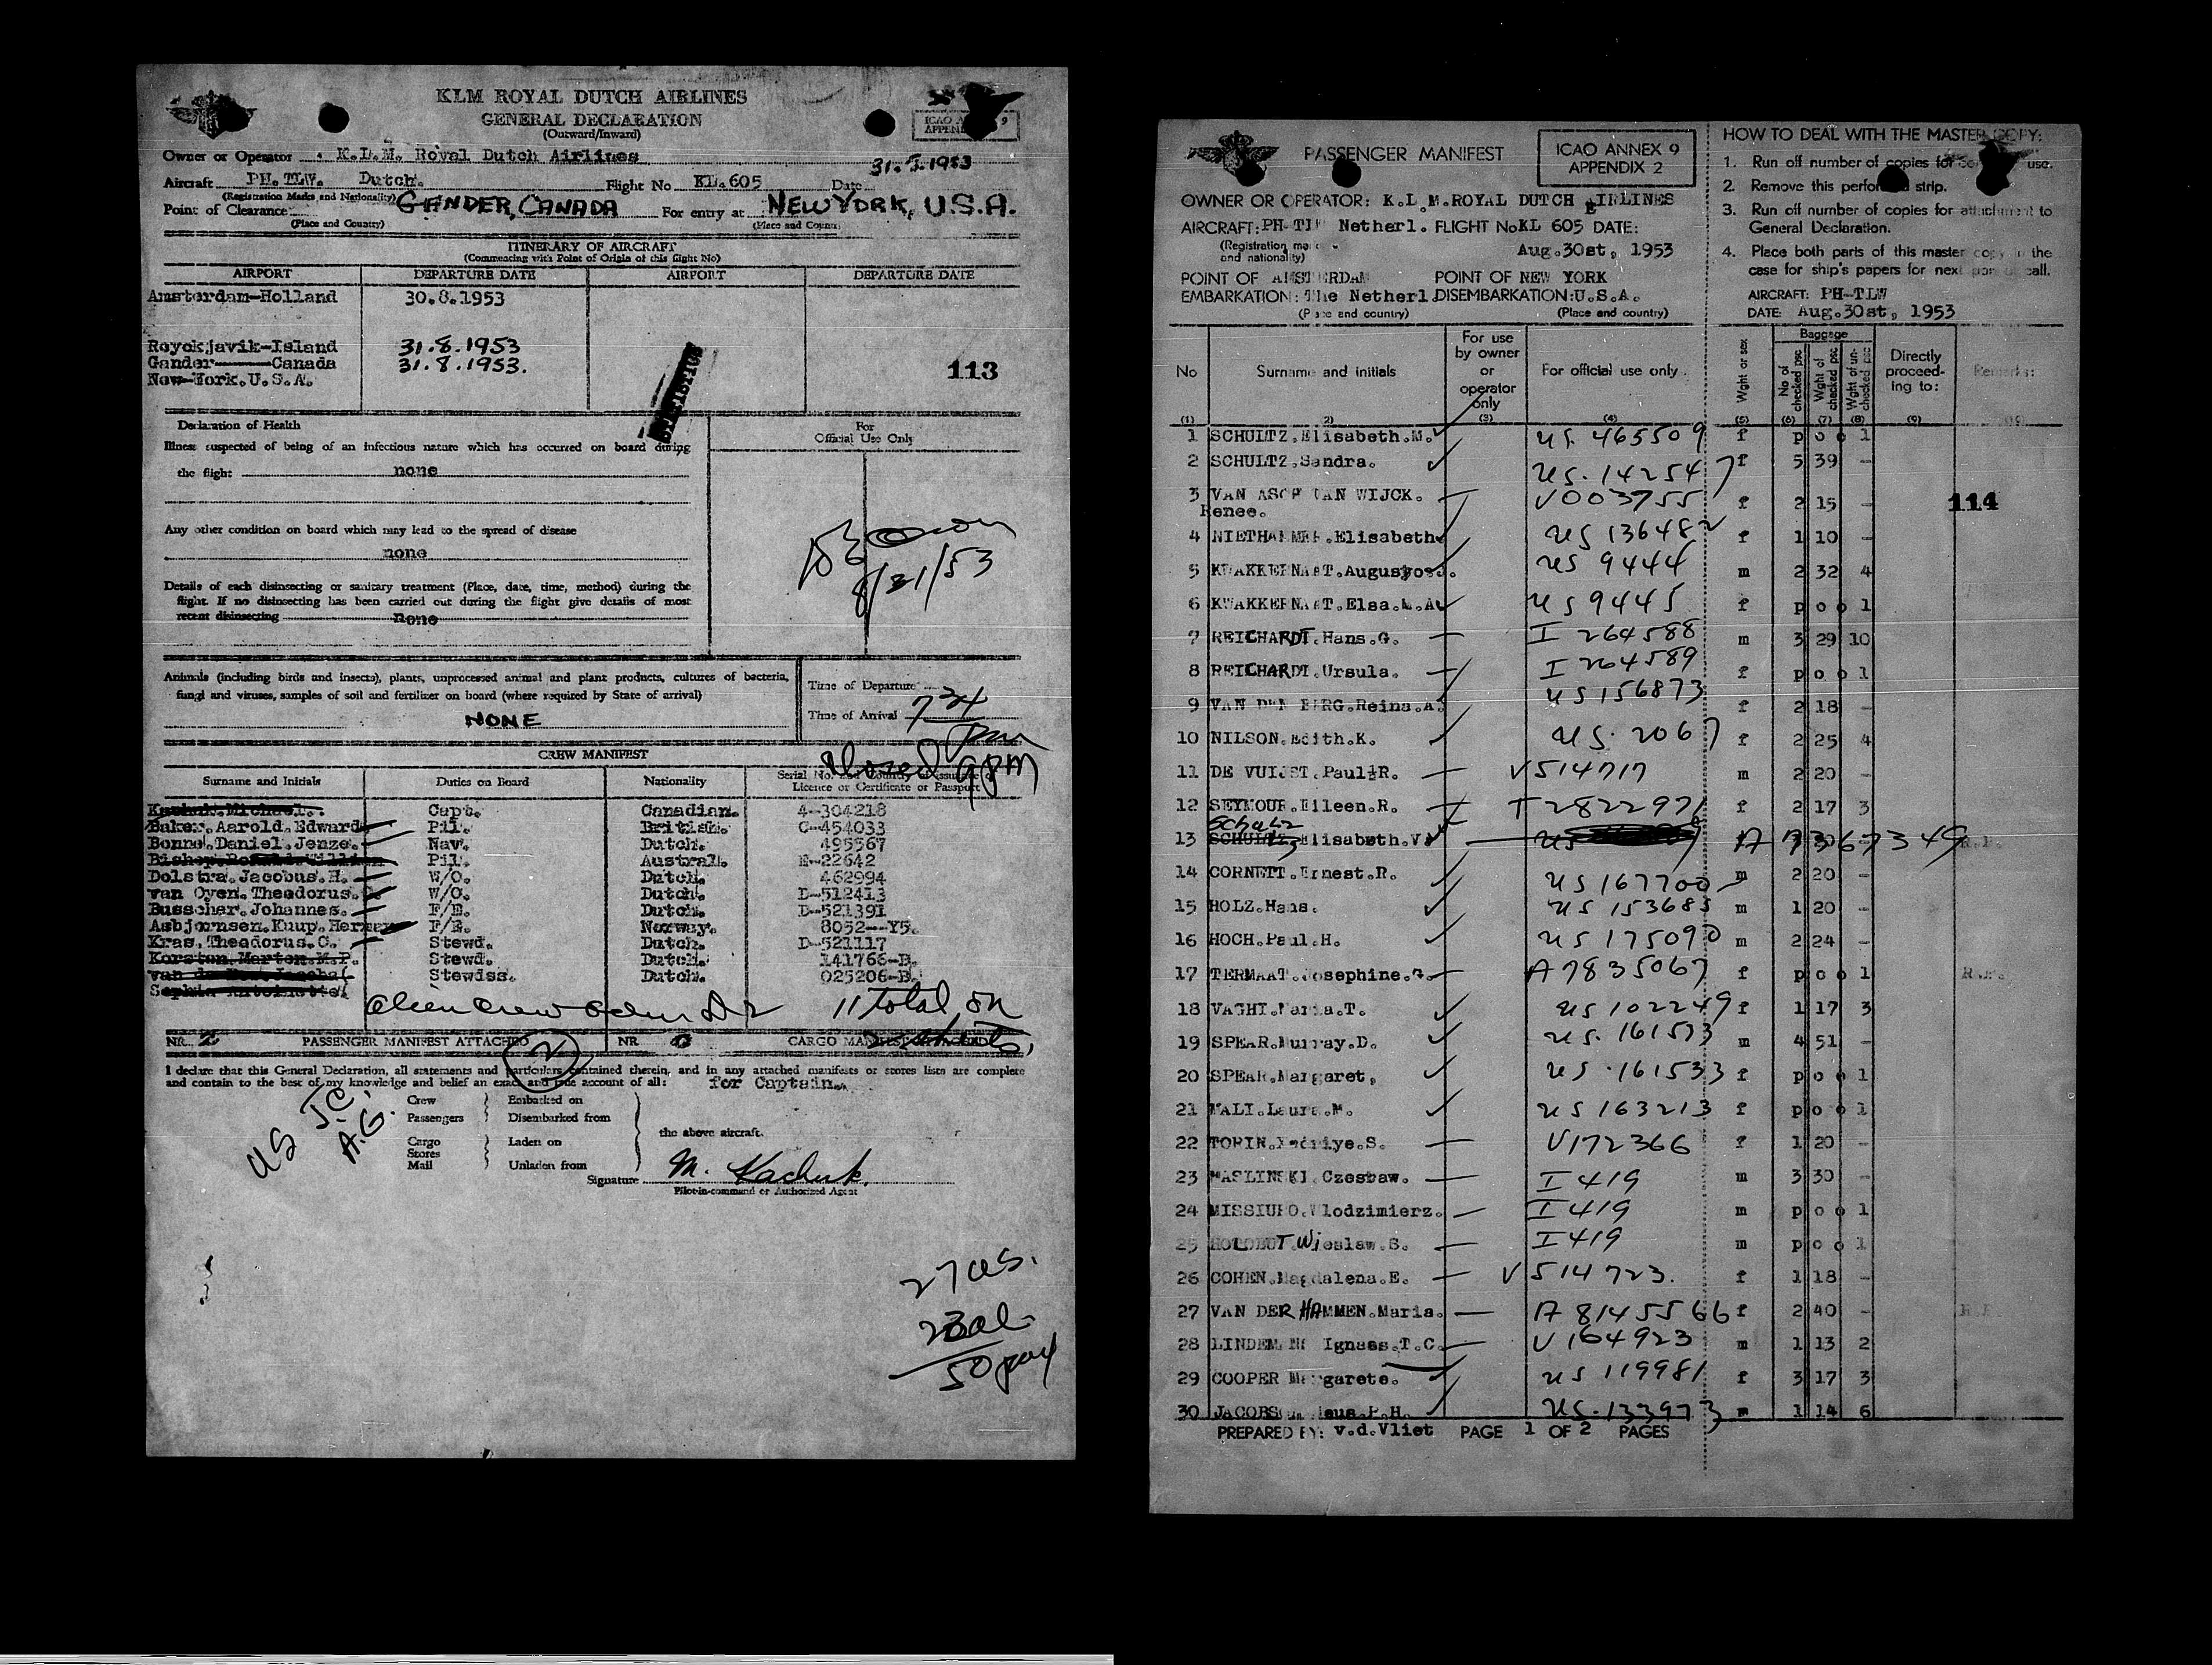 KLM ROYAL DUTCH AIRLINES
GENERAL DECLARATION
(Outward/Inward)
ICAO A 9
APPEN
Owner or Operator K.L.M. Royal Dutch Airlines
31.8.1953
Aircraft PH. TLW. Dutch. Flight No KL.605 Date
(Registration Marks and Nationality)
Point of Clearance GANDER, CANADA For entry at NEW YORK, U.S.A.
(Place and Country) (Place and Country)
ITINERARY OF AIRCRAFT
(Commencing with Point of Origin of this flight No)
AIRPORT DEPARTURE DATE AIRPORT DEPARTURE DATE
Amsterdam-Holland 30.8.1953
Reyckjavik-Island 31.8.1953
Gander-----Canada 31.8.1953.
New-York.U.S.A.
113
Declaration of Health
For
Official Use Only
Illness suspected of being of an infectious nature which has occurred on board during
the flight none
Any other condition on board which may lead to the spread of disease
none
8/31/53
Details of each disinsecting or sanitary treatment (Place, date, time, method) during the
flight. If no disinsecting has been carried out during the flight give details of most
recent disinsecting none
Animals (including birds and insects), plants, unprocessed animal and plant products, cultures of bacteria,
fungi and viruses, samples of soil and fertilizer on board (where required by State of arrival)
NONE
Time of Departure
Time of Arrival 734 pm
closed 9PM
CREW MANIFEST
Surname and Initials Duties on Board Nationality Serial No. and Country of issuance of
Licence or Certificate or Passport
Kachuk.Michael. Capt. Canadian. 4-304218
Baker.Aarold.Edward Pil. British. C-454033
Bonne.Daniel.Jenze. Nav. Dutch. 495567
Bishop.Ronald.William Pil. Austral. E-22642
Dolstra.Jacobus.H. W/O. Dutch. 462994
van Oyen.Theodorus. W/O. Dutch. D-512413
Busscher.Johannes. F/E. Dutch. D-521391
Asbjornsen.Kuup.Herman F/E. Norway. 8052--Y5.
Kras.Theodorus.C. Stewd. Dutch. D-521117
Korsten.Marten.M.P. Stewd. Dutch. 141766-B.
Stewiss. Dutch. 025206-B.
Sophia Antoinette
11 total on
NR. 2 PASSENGER MANIFEST ATTACHED NR 0 CARGO MANIFEST ATTACHED
2
I declare that this General Declaration, all statements and particulars contained therein, and in any attached manifests or stores lists are complete
and contain to the best of my knowledge and belief an exact and true account of all: for Captain.
US J.C. A.G.
Crew Embarked on
Passengers Disembarked from
the above aircraft.
Cargo Laden on
Stores
Mail Unladen from
Signature M. Kachuk.
Pilot-in-command or Authorized Agent
27 US.
23 al.
50 pax
PASSENGER MANIFEST
ICAO ANNEX 9
APPENDIX 2
OWNER OR OPERATOR: K.L.M.ROYAL DUTCH AIRLINES
AIRCRAFT: PH-TL Netherl. FLIGHT No KL 605 DATE:
(Registration mark
and nationality)
Aug.30st, 1953
POINT OF AMSTERDAM POINT OF NEW YORK
EMBARKATION: The Netherl. DISEMBARKATION: U.S.A.
(Place and country) (Place and country)
HOW TO DEAL WITH THE MASTER COPY:
1. Run off number of copies for use.
2. Remove this perforated strip.
3. Run off number of copies for attachment to
General Declaration.
4. Place both parts of this master copy in the
case for ship's papers for next port of call.
AIRCRAFT: PH-TLW
DATE: Aug.30st, 1953
No Surname and initials For use by owner or operator only For official use only Wght or sex Baggage No of checked psc Wght of checked psc Wght of un-checked psc Directly proceeding to: Remarks:
(1) (2) (3) (4) (5) (6) (7) (8) (9)
1 SCHULTZ.Elisabeth.M. US. 465509 f p o o 1
2 SCHULTZ.Sandra. US. 142547 f 5 39 -
3 VAN ASCH VAN WIJCK. Renee. V003755 f 2 15 -
114
4 NIETHAMMER.Elisabeth US 136482 f 1 10 -
5 KWAKKERNAAT.Augustyo.J. US 9444 m 2 32 4
6 KWAKKERNAAT.Elsa.M.A US 9445 f p o o 1
7 REICHARDT.Hans.G. I 264588 m 3 29 10
8 REICHARDT.Ursula. I 264589 f p o o 1
9 VAN DEN BERG.Reina.A. US 156873 f 2 18 -
10 NILSON.Edith.K. US. 2067 f 2 25 4
11 DE VUIJST.Paul.R. V514717 m 2 20 -
12 SEYMOUR.Eileen.R. T2822971 f 2 17 3
Schulz
13 SCHULTZ.Elisabeth.V. US A 7367349 R.P.
14 CORNETT.Ernest.R. US 167700 m 2 20 -
15 HOLZ.Hans. US 153685 m 1 20 -
16 HOCH.Paul.H. US 175090 m 2 24 -
17 TERMAAT.Josephine.G. A7835067 f p o o 1
18 VAGHI.Maria.T. US 102249 f 1 17 3
19 SPEAR.Murray.D. US. 161533 m 4 51 -
20 SPEAR.Margaret, US. 161533 f p o o 1
21 Laura.M. US 163213 f p o o 1
22 TORIN.Kadriye.S. V172366 f 1 20 -
23 MASLINSKI.Czestaw. I 419 m 3 30 -
24 MISSIURO.Wlodzimierz. I 419 m p o o 1
25 HOLOBUT.Wieslaw.S. I 419 m p o o 1
26 COHEN.Magdalena.E. V 514723. f 1 18 -
27 VAN DER HAMMEN.Maria. A 8145566 f 2 40 -
28 LINDEMAN Ignaes.T.C. V164923 m 1 13 2
29 COOPER Margarete. US 119981 f 3 17 3
30 JACOBSON P.H. US. 133973 m 1 14 6
PREPARED BY: v.d.Vliet PAGE 1 OF 2 PAGES